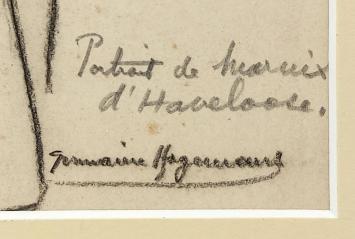 Portrait de Marnix
d'Haveloose.
Germaine Hagemans